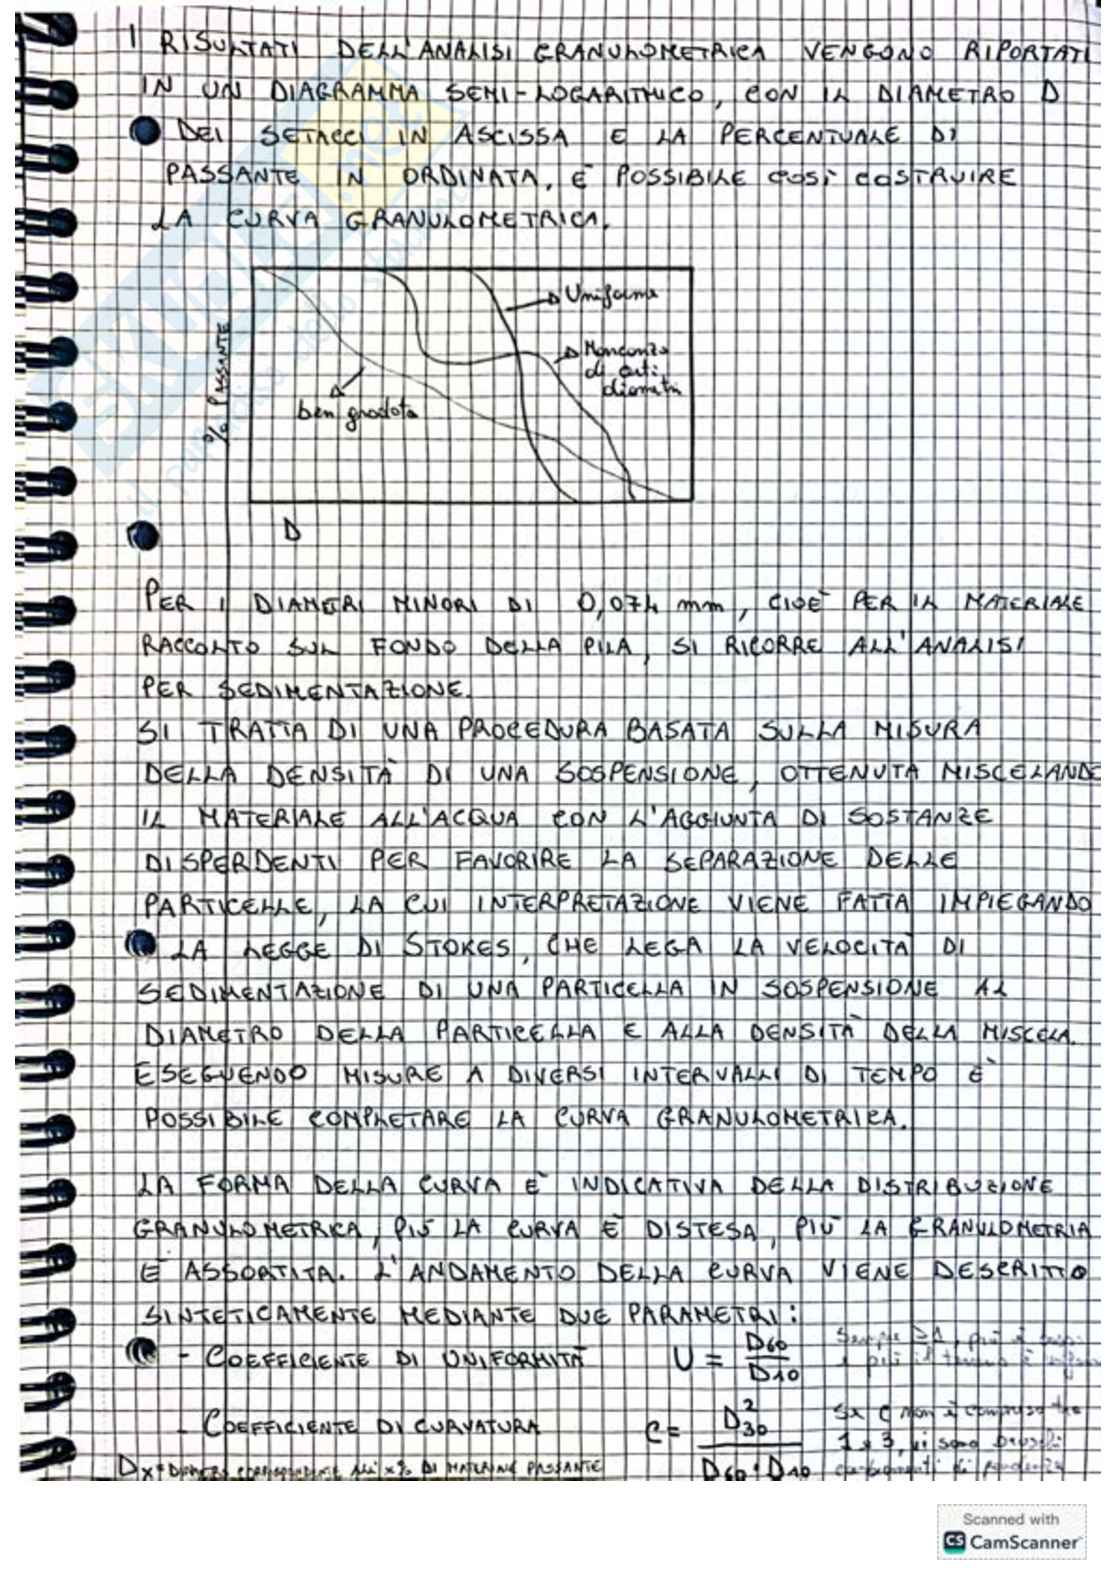 I RISULTATI DELL'ANALISI GRANULOMETRICA VENGONO RIPORTATI
IN UN DIAGRAMMA SEMI-LOGARITMICO, CON IL DIAMETRO D
DEI SETACCI IN ASCISSA E LA PERCENTUALE DI
PASSANTE IN ORDINATA. È POSSIBILE COSÌ COSTRUIRE
LA CURVA GRANULOMETRICA.
Uniforme
Mancanza
di
diametri
ben gradata
% PASSANTE
D
PER I DIAMETRI MINORI DI 0,074 mm, CIOÈ PER IL MATERIALE
RACCOLTO SUL FONDO DELLA PILA, SI RICORRE ALL'ANALISI
PER SEDIMENTAZIONE.
SI TRATTA DI UNA PROCEDURA BASATA SULLA MISURA
DELLA DENSITÀ DI UNA SOSPENSIONE, OTTENUTA MISCELANDO
IL MATERIALE ALL'ACQUA CON L'AGGIUNTA DI SOSTANZE
DISPERDENTI PER FAVORIRE LA SEPARAZIONE DELLE
PARTICELLE, LA CUI INTERPRETAZIONE VIENE FATTA IMPIEGANDO
LA LEGGE DI STOKES, CHE LEGA LA VELOCITÀ DI
SEDIMENTAZIONE DI UNA PARTICELLA IN SOSPENSIONE AL
DIAMETRO DELLA PARTICELLA E ALLA DENSITÀ DELLA MISCELA.
ESEGUENDO MISURE A DIVERSI INTERVALLI DI TEMPO È
POSSIBILE COMPLETARE LA CURVA GRANULOMETRICA.
LA FORMA DELLA CURVA È INDICATIVA DELLA DISTRIBUZIONE
GRANULOMETRICA, PIÙ LA CURVA È DISTESA, PIÙ LA GRANULOMETRIA
È ASSORTITA. L'ANDAMENTO DELLA CURVA VIENE DESCRITTO
SINTETICAMENTE MEDIANTE DUE PARAMETRI:
- COEFFICIENTE DI UNIFORMITÀ U = D60 / D10
Sempre ≥1, più è
più il terreno è
- COEFFICIENTE DI CURVATURA C = D²30 / D60 · D10
Se C non è compreso tra
1 e 3, vi sono bruschi
cambiamenti di pendenza
Dx = DIAMETRO CORRISPONDENTE ALL'X% DI MATERIALE PASSANTE
Scanned with
CS CamScanner